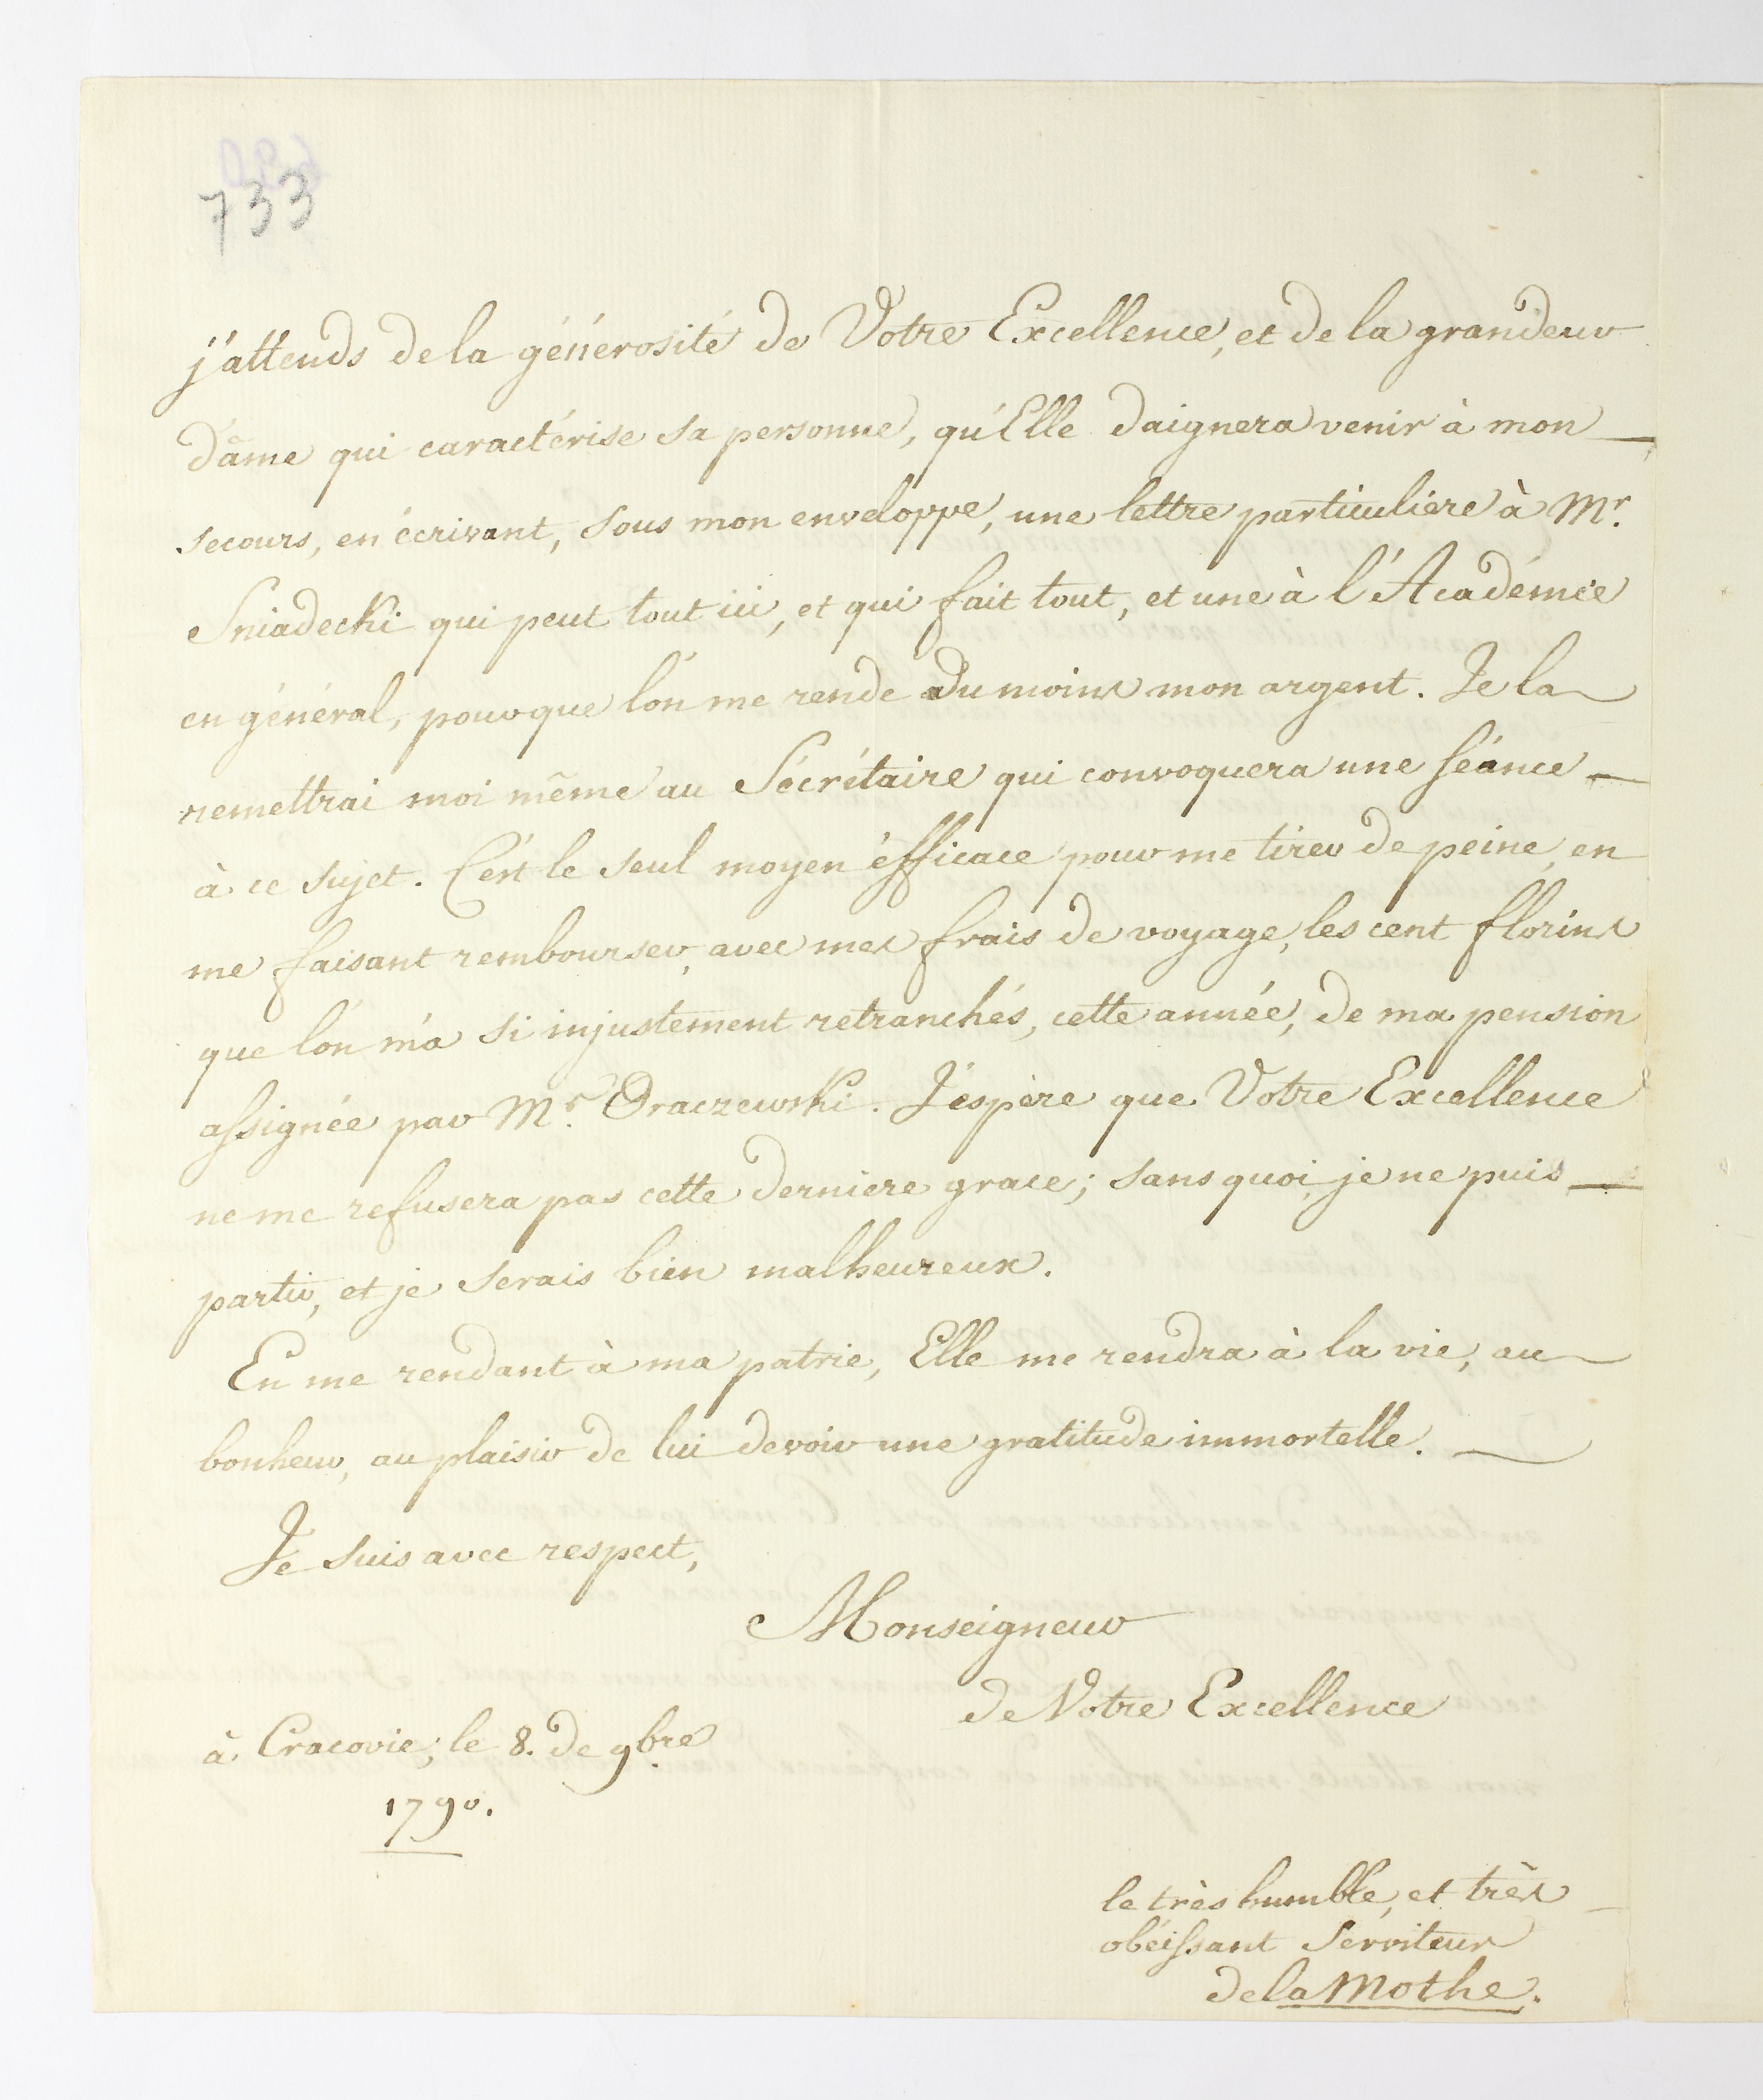 733
j'attends de la générosité de Votre Excellence, et de la grandeur
d'âme qui caractérise sa personne, qu'Elle daignera venir à mon
secours, en écrivant, sous mon enveloppe, une lettre particuliere à Mr.
Sniadecki qui peut tout ici, et qui fait tout, et une à l'Académie
en général, pour que l'on me rende du moins mon argent. Je la
remettrai moi même au Sécrétaire qui convoquera une séance
à ce sujet. C'est le seul moyen éfficace pour me tirer de peine, en
me faisant rembourser, avec mes frais de voyage, les cent florins
que l'on m'a si injustement retranchés, cette année, de ma pension
assignée par Mr. Oraczewski. J'espère que Votre Excellence
ne me refusera pas cette derniere grace; sans quoi, je ne puis
partir, et je serais bien malheureux.
En me rendant à ma patrie, Elle me rendra à la vie, au
bonheur, au plaisir de lui devoir une gratitude immortelle.
Je suis avec respect,
Monseigneur
de Votre Excellence
à Cracovie, le 8. de 9bre
1790.
le très humble, et très
obéissant Serviteur
de la Mothe.